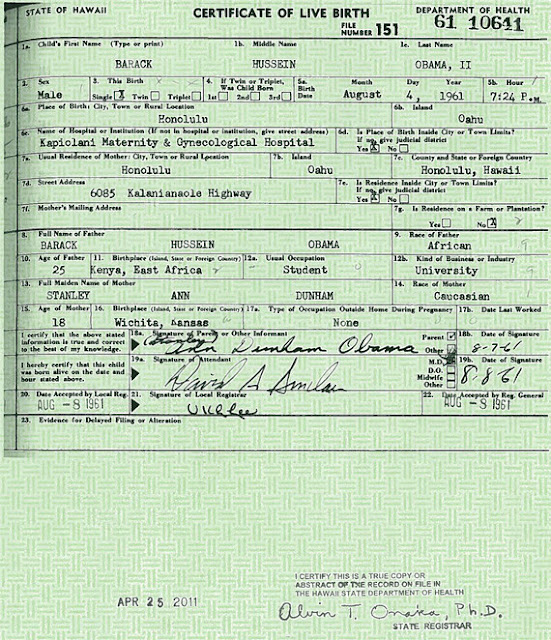 STATE OF HAWAII CERTIFICATE OF LIVE BIRTH DEPARTMENT OF HEALTH
FILE NUMBER 151 61 10641
1a. Child's First Name (Type or print) 1b. Middle Name 1c. Last Name
BARACK HUSSEIN OBAMA, II
2. Sex 3. This Birth 4. If Twin or Triplet, Was Child Born 5a. Birth Date Month Day Year 5b. Hour
Male Single X Twin Triplet 1st 2nd 3rd August 4, 1961 7:24 P.M.
6a. Place of Birth: City, Town or Rural Location 6b. Island
Honolulu Oahu
6c. Name of Hospital or Institution (If not in hospital or institution, give street address) 6d. Is Place of Birth Inside City or Town Limits? If no, give judicial district
Kapiolani Maternity & Gynecological Hospital Yes X No
7a. Usual Residence of Mother: City, Town or Rural Location 7b. Island 7c. County and State or Foreign Country
Honolulu Oahu Honolulu, Hawaii
7d. Street Address 7e. Is Residence Inside City or Town Limits? If no, give judicial district
6085 Kalanianaole Highway Yes X No
7f. Mother's Mailing Address 7g. Is Residence on a Farm or Plantation?
Yes No X
8. Full Name of Father 9. Race of Father
BARACK HUSSEIN OBAMA African
10. Age of Father 11. Birthplace (Island, State or Foreign Country) 12a. Usual Occupation 12b. Kind of Business or Industry
25 Kenya, East Africa Student University
13. Full Maiden Name of Mother 14. Race of Mother
STANLEY ANN DUNHAM Caucasian
15. Age of Mother 16. Birthplace (Island, State or Foreign Country) 17a. Type of Occupation Outside Home During Pregnancy 17b. Date Last Worked
18 Wichita, Kansas None
I certify that the above stated information is true and correct to the best of my knowledge. 18a. Signature of Parent or Other Informant Parent Other 18b. Date of Signature
(Stanley) Ann Dunham Obama 8-7-61
I hereby certify that this child was born alive on the date and hour stated above. 19a. Signature of Attendant M.D. D.O. Midwife Other 19b. Date of Signature
David A Sinclair 8-8-61
20. Date Accepted by Local Reg. 21. Signature of Local Registrar 22. Date Accepted by Reg. General
AUG -8 1961 UKLee AUG -8 1961
23. Evidence for Delayed Filing or Alteration
APR 25 2011
I CERTIFY THIS IS A TRUE COPY OR
ABSTRACT OF THE RECORD ON FILE IN
THE HAWAII STATE DEPARTMENT OF HEALTH
Alvin T. Onaka, Ph.D.
STATE REGISTRAR